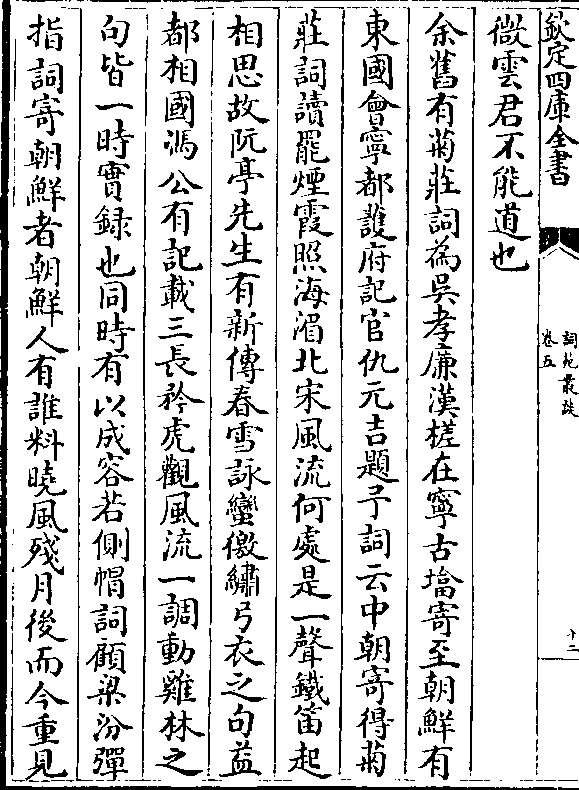 欽定四庫全書
詞苑叢談
卷五
十二
微雲君不能道也
余舊有菊莊詞為吳孝廉漢槎在寧古塔寄至朝鮮有
東國會寧都護府記官仇元吉題予詞云中朝寄得菊
莊詞讀罷煙霞照海湄北宋風流何處是一聲鐵笛起
相思故阮亭先生有新傳春雪詠蠻徼繡弓衣之句益
都相國馮公有記載三長矜虎觀風流一調動雞林之
句皆一時實録也同時有以成容若側帽詞顧梁汾彈
指詞寄朝鮮者朝鮮人有誰料曉風殘月後而今重見